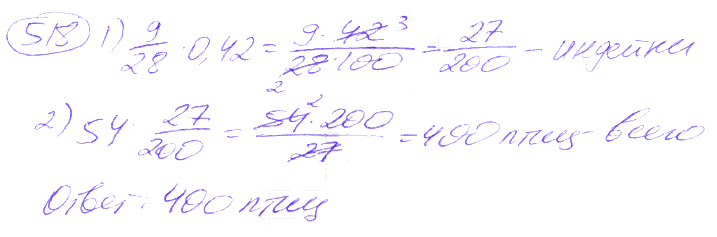 518 1) 9/28 · 0,42 = 9 · 42 3 / 28 · 100 2 = 27/200 – индейки
2) 54 · 27/200 = 54 2 · 200 / 27 = 400 птиц – всего
Ответ: 400 птиц